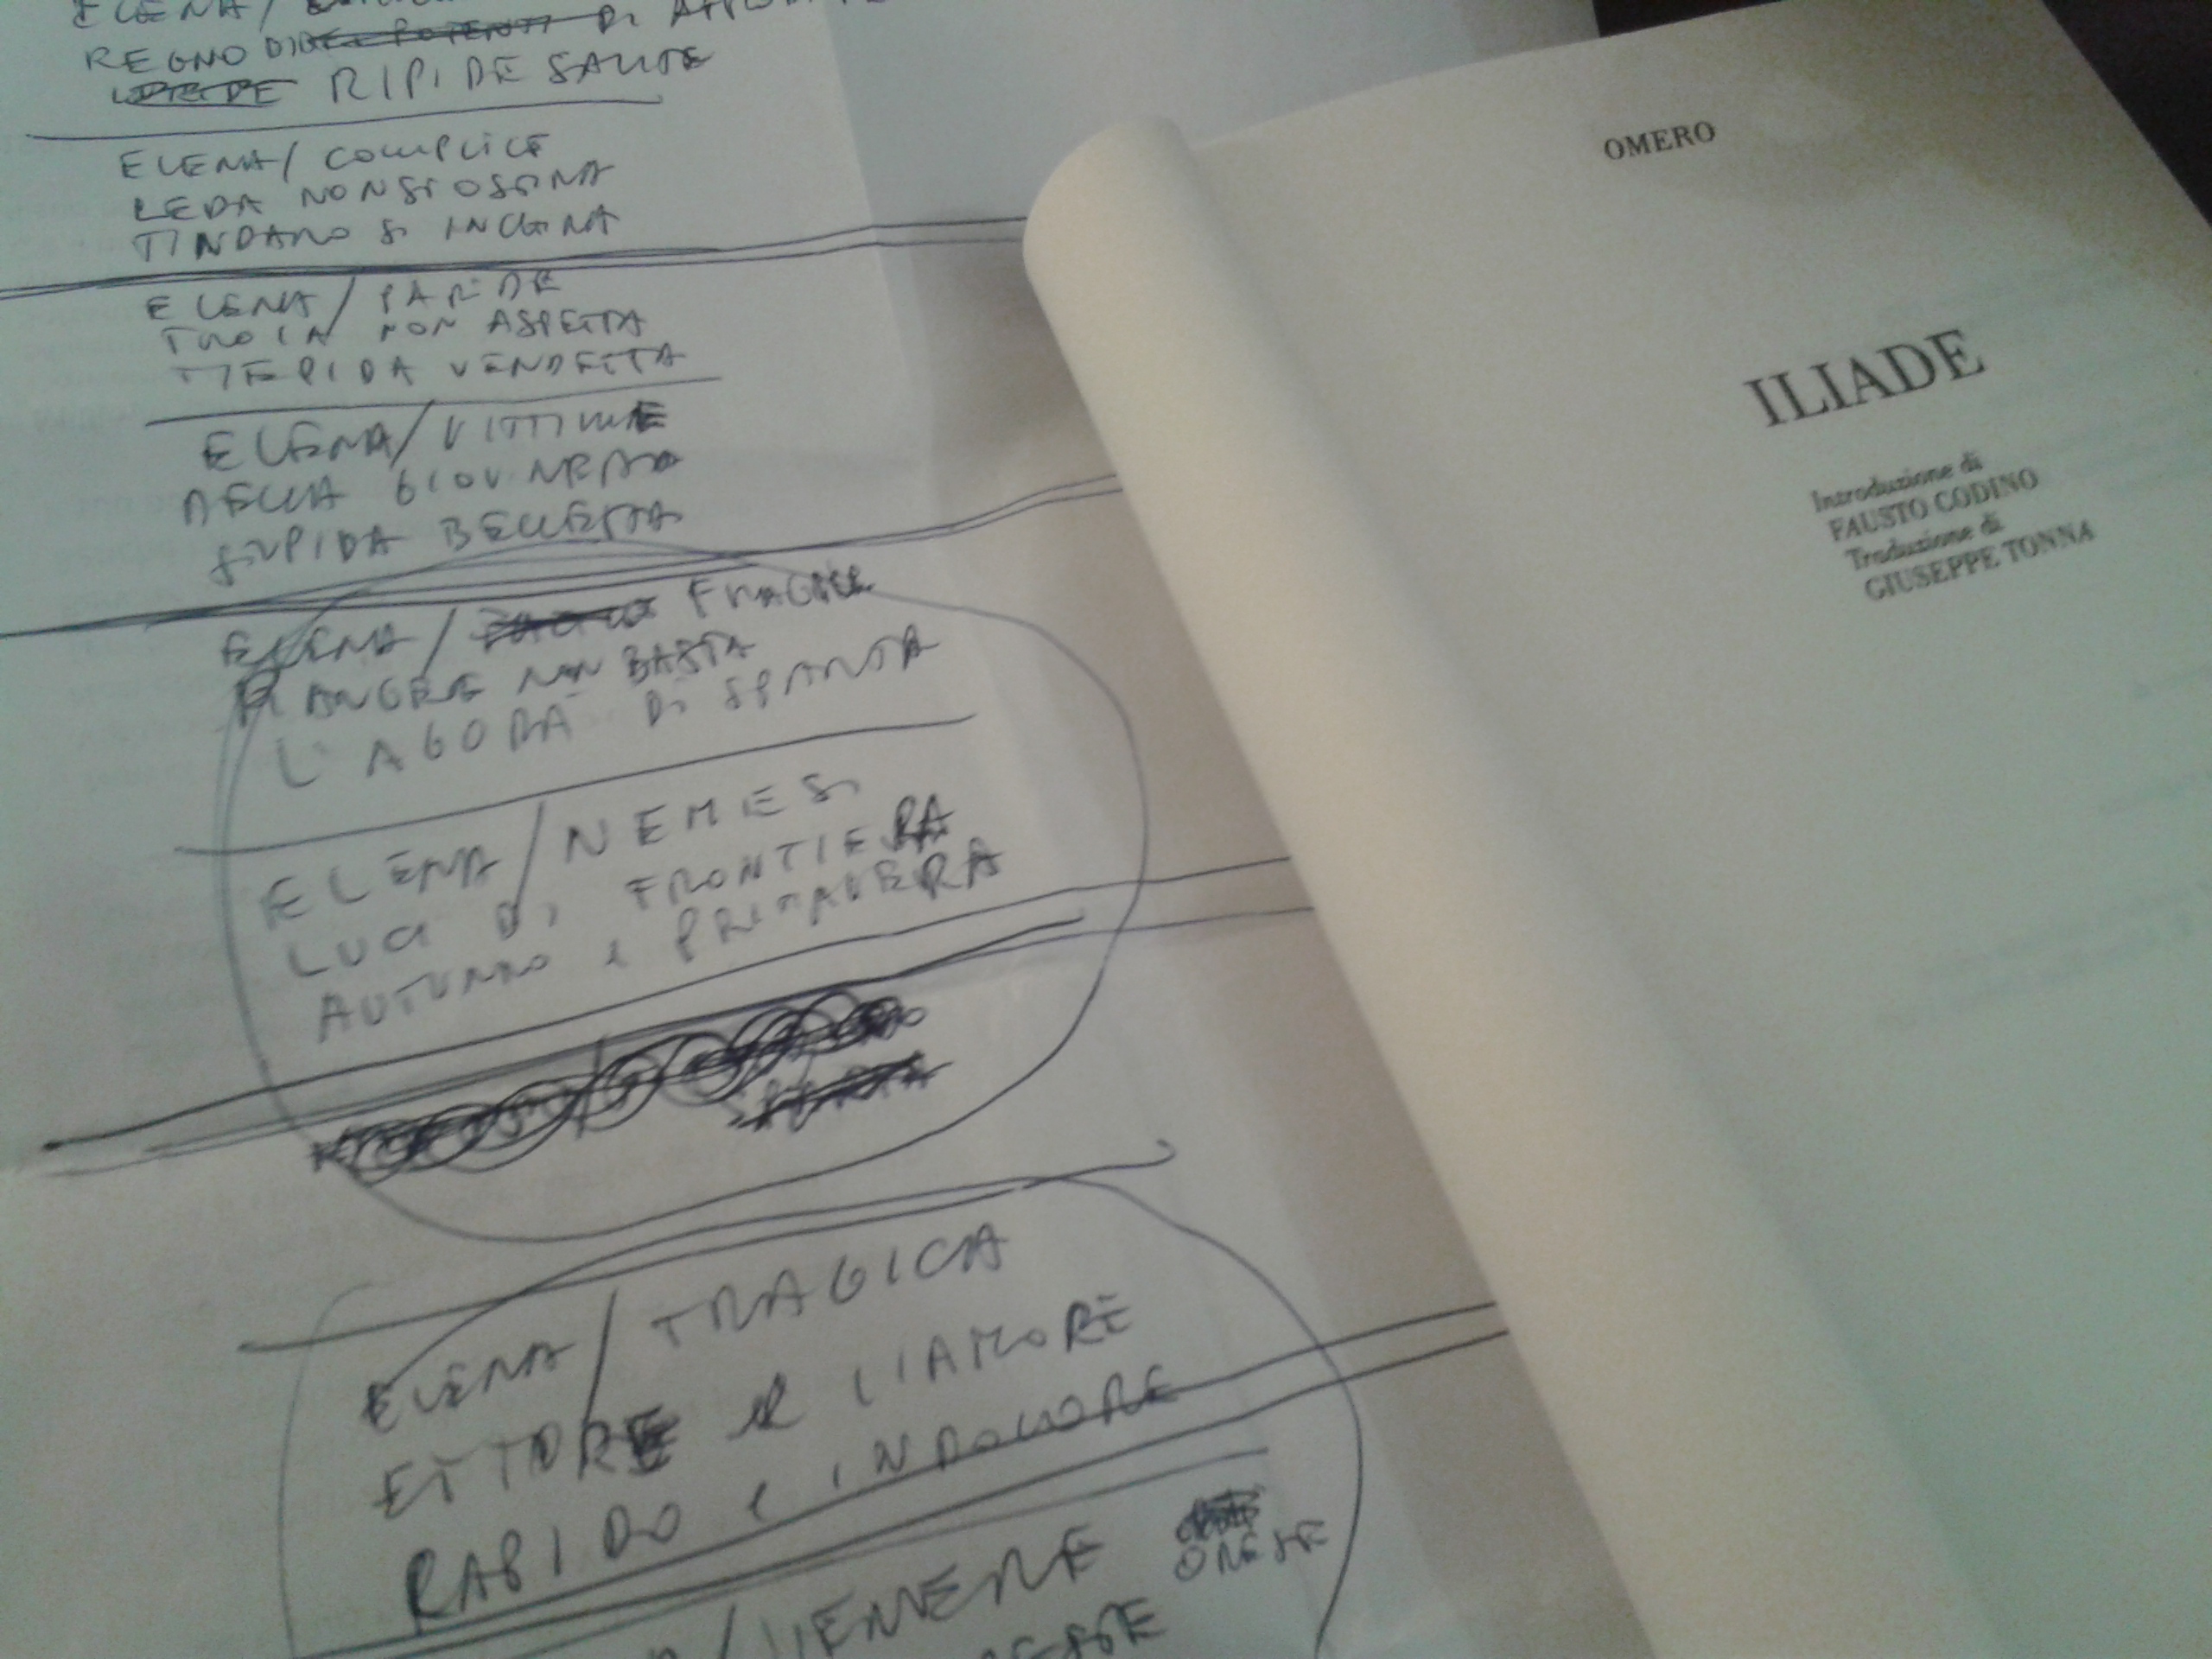 ELENA/
REGNO DI DI
RIPIDE SALITE
ELENA/ COMPLICE
LEDA NON SI OSTINA
TINDARO SI INCLINA
ELENA/ PARIDE
TROIA NON ASPETTA
TIEPIDA VENDETTA
ELENA/ VITTIME
DELLA
STUPIDA BELLEZZA
ELENA/ FRAGILE
PIANGERE NON BASTA
L'AGORÀ DI SPARTA
ELENA/ NEMESI
LUCI DI FRONTIERA
AUTUNNO e PRIMAVERA
SPARTA
ELENA/ TRAGICA
ETTORE e L'AMORE
RAPIDO e INDOLORE
/VENERE
OMERO
ILIADE
Introduzione di
FAUSTO CODINO
Traduzione di
GIUSEPPE TONNA